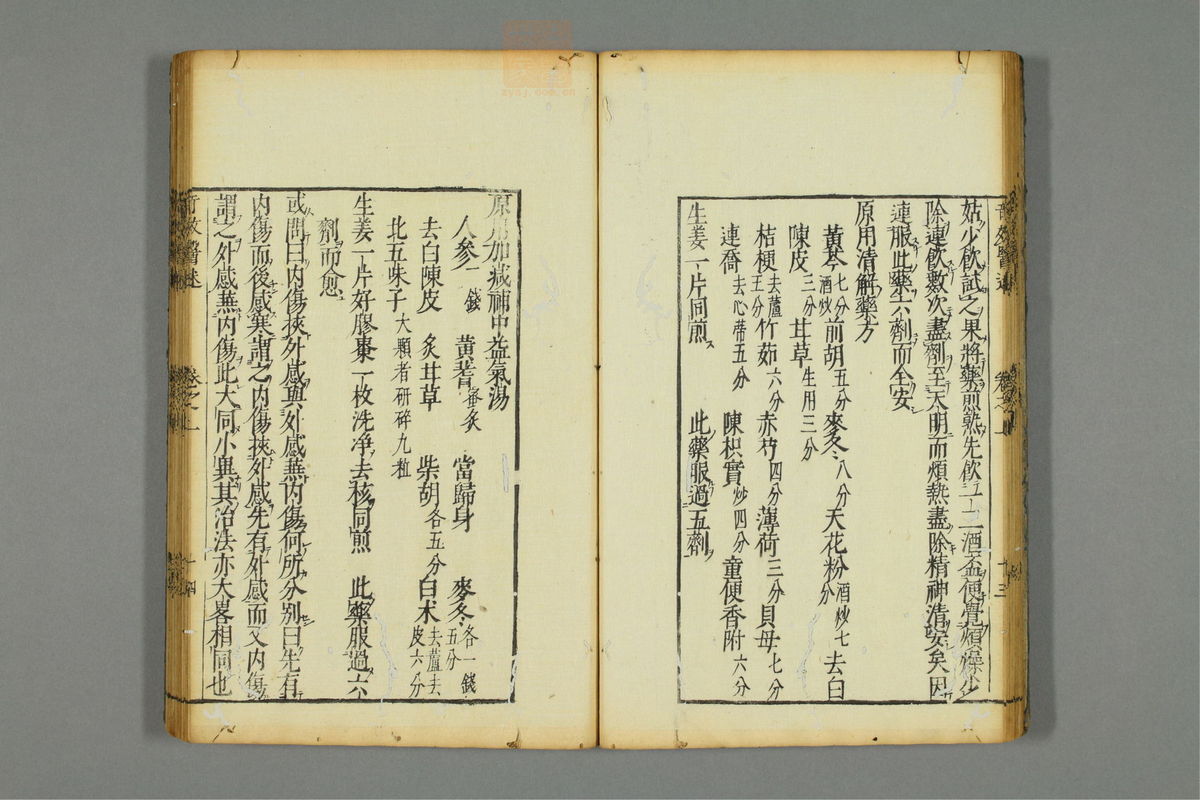 姑少飲試之果將藥煎熟先飲一二酒盃便覺煩燥少
除連飲數次盡劑至天明而煩熱盡除精神清安矣因
連服此藥六劑而全安
原用清解藥方
黃芩七分酒炒 前胡五分 麥冬八分 天花粉酒炒七分 去白
陳皮三分 甘草生用三分
桔梗去蘆五分 竹茹六分 赤芍四分 薄荷三分 貝母七分
連喬去心蒂五分 陳枳實炒四分 童便香附六分
生姜一片同煎 此藥服過五劑
卷之一
十三
原用加減補中益氣湯
人參一錢 黃蓍蜜炙 當歸身 麥冬各一錢五分
去白陳皮 炙甘草 柴胡各五分 白术去蘆去皮六分
北五味子大顆者研碎九粒
生姜一片好膠棗一枚洗净去核同煎 此藥服過六
劑而愈
或問曰內傷挾外感與外感蕪內傷何所分別曰先有
內傷而後感寒謂之內傷挾外感先有外感而又內傷
謂之外感蕪內傷此大同小異其治法亦大畧相同也
卷之一
十四
zysj.com.cn